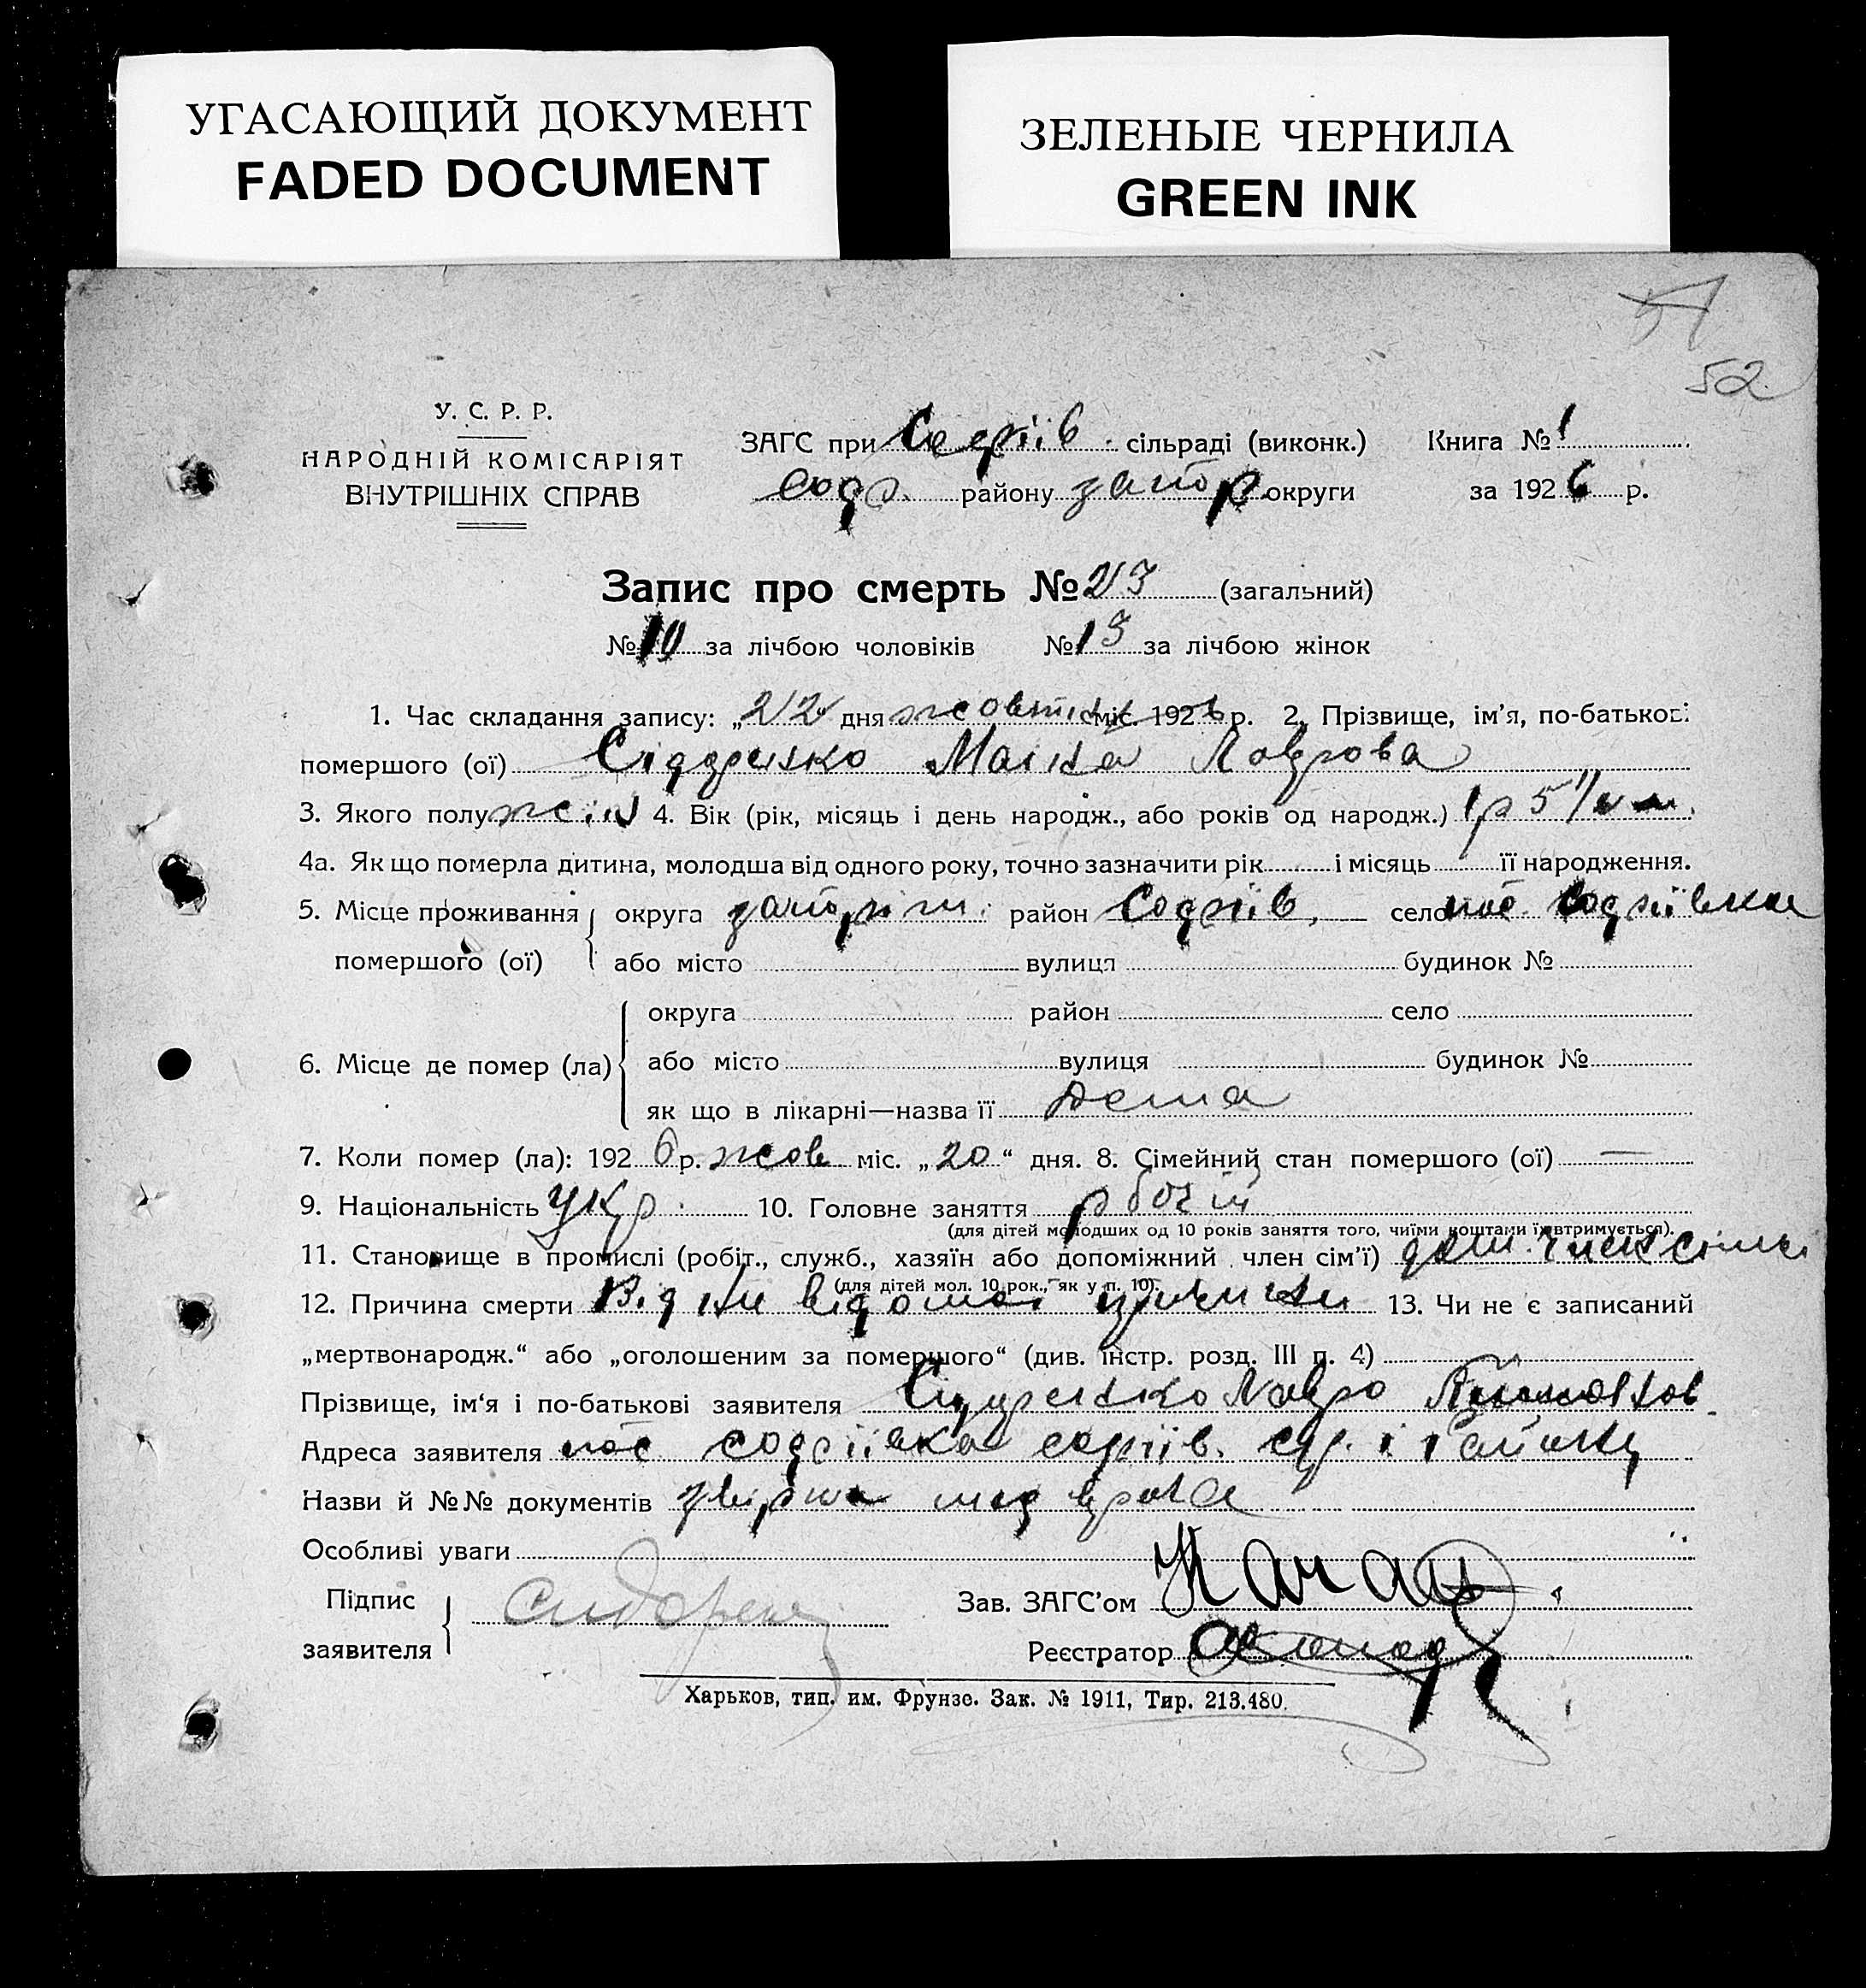 УГАСАЮЩИЙ ДОКУМЕНТ
FADED DOCUMENT
ЗЕЛЕНЫЕ ЧЕРНИЛА
GREEN INK
52
У. С. Р. Р.
НАРОДНІЙ КОМІСАРІЯТ
ВНУТРІШНІХ СПРАВ
ЗАГС при Софіїв. сільраді (виконк.) Книга № 1
Соф. району запор округи за 1926 р.
Запис про смерть № 23 (загальний)
№ 10 за лічбою чоловіків № 13 за лічбою жінок
1. Час складання запису: „22“ дня жовтня міс. 1926 р. 2. Прізвище, ім'я, по-батькові
помершого (ої) Сідоренко Лаврова
3. Якого полу жін 4. Вік (рік, місяць і день народж., або років од народж.) 1 р 5
4а. Як що померла дитина, молодша від одного року, точно зазначити рік і місяць її народження.
5. Місце проживання помершого (ої) округа запоріж. район Софіїв. село пос. Софіївка
або місто вулиця будинок №
6. Місце де помер (ла) округа район село
або місто вулиця будинок №
як що в лікарні—назва її дома
7. Коли помер (ла): 1926 р. жов міс. „20“ дня. 8. Сімейний стан помершого (ої) —
9. Національність укр. 10. Головне заняття рбочій
(для дітей молодших од 10 років заняття того, чиїми коштами їх втримується).
11. Становище в промислі (робіт., служб., хазяїн або допоміжний член сім'ї) доп. член сімьі
(для дітей мол. 10 рок., як у п. 10).
12. Причина смерти Від не відомої причини 13. Чи не є записаний
„мертвонародж.“ або „оголошеним за помершого“ (див. інстр. розд. III п. 4)
Прізвище, ім'я і по-батькові заявителя Сидоренко Лавро
Адреса заявителя пос Софіївка софіїв. с/р. і району
Назви й №№ документів
Особливі уваги
Підпис заявителя Сидорен
Зав. ЗАГС'ом
Реєстратор
Харьков, тип. им. Фрунзе. Зак. № 1911, Тир. 213.480.